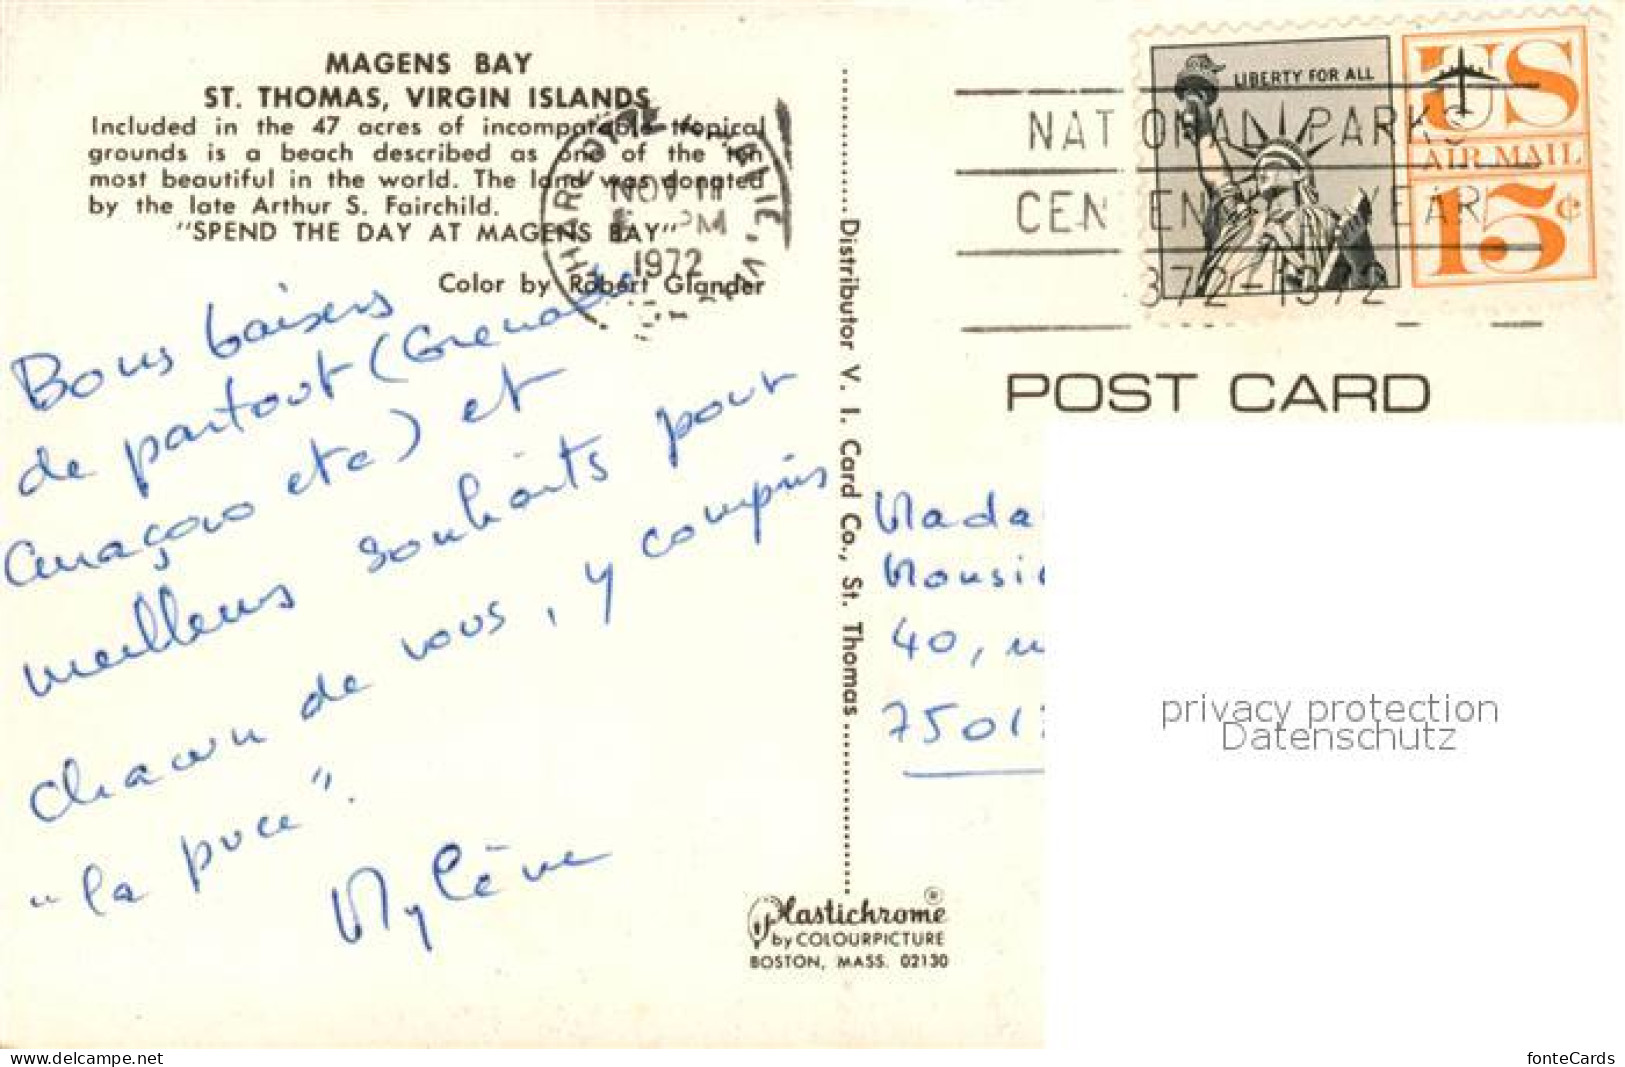 MAGENS BAY
ST. THOMAS, VIRGIN ISLANDS
Included in the 47 acres of incomparable tropical
grounds is a beach described as one of the ten
most beautiful in the world. The land was donated
by the late Arthur S. Fairchild.
"SPEND THE DAY AT MAGENS BAY"
Color by Robert Glander
NOV 11
PM
1972
Bons baisers
de partout (Grenade
Curaçao etc) et
meilleurs souhaits pour
chacun de vous, y compris
"la puce".
Mylène
Distributor V. I. Card Co., St. Thomas
Plastichrome®
by COLOURPICTURE
BOSTON, MASS. 02130
LIBERTY FOR ALL
US
AIR MAIL
15¢
NATIONAL PARKS
CENTENNIAL YEAR
1872-1972
POST CARD
Mada
Monsie
40,
7501
privacy protection
Datenschutz
www.delcampe.net
fonteCards